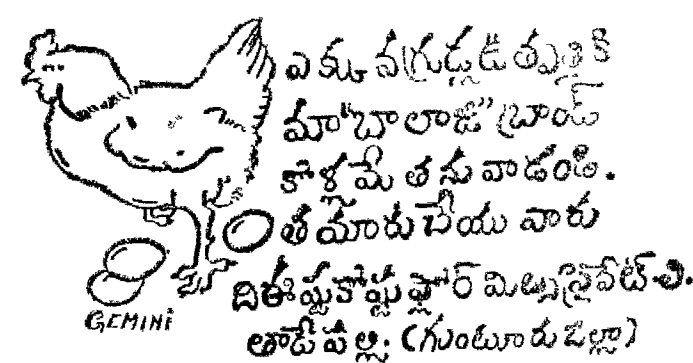 ఎక్కువగ్రుడ్లఉత్పత్తికి
మా"బాలాజి" బ్రాండ్
కోళ్లమేతను వాడండి.
తయారుచేయు వారు
దిఈష్టుకోష్టుఫ్లోర్ మిల్సుప్రైవేట్ లి.
తాడేపల్లి. (గుంటూరుజిల్లా)
GEMINI